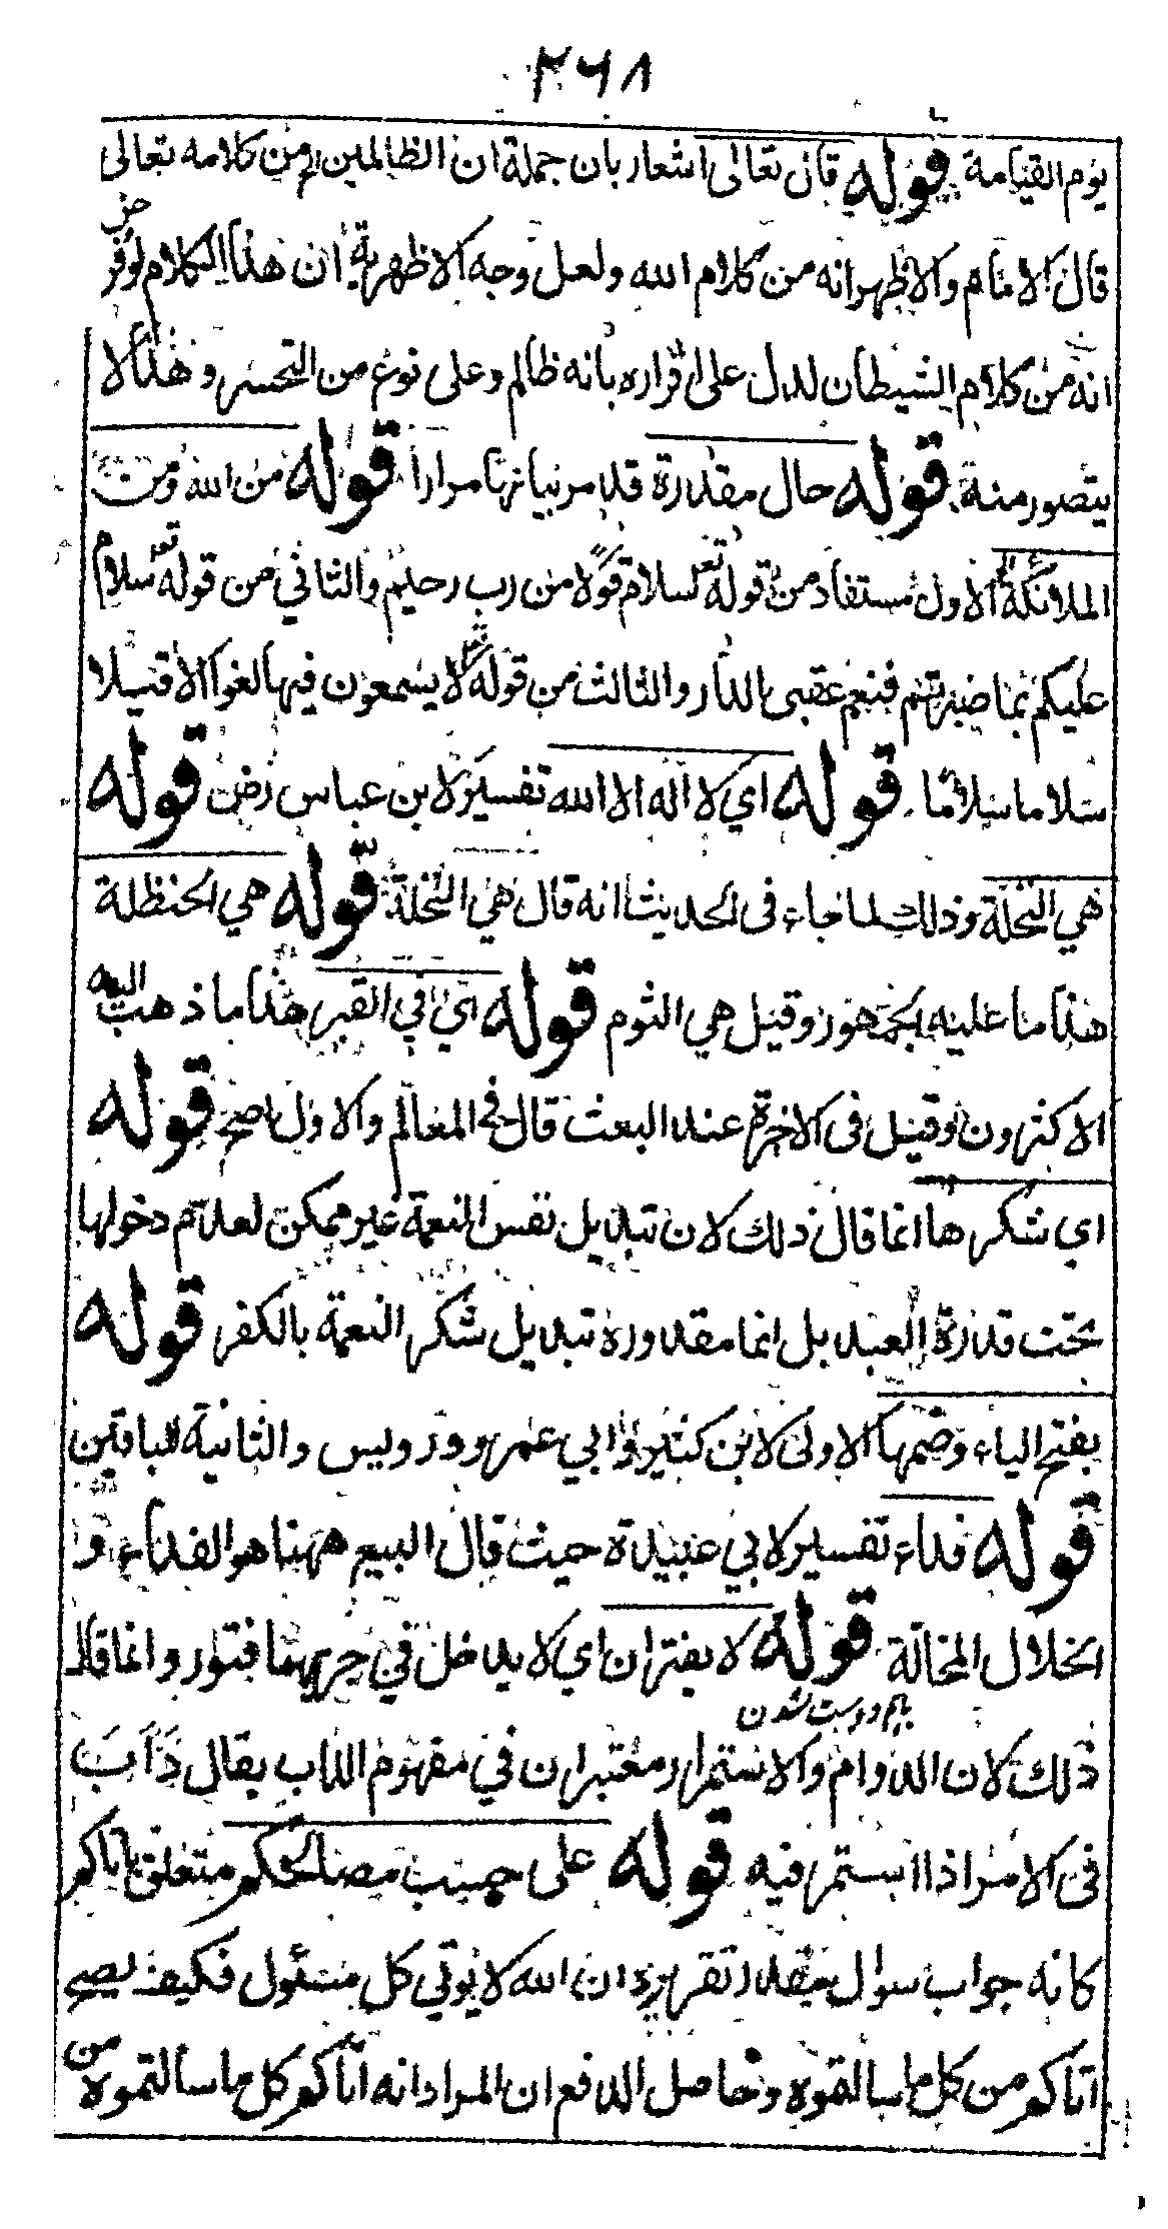 ٢٦٨
يوم القيامة قوله قال تعالى اشعار بان جملة ان الظالمين الخ من كلامه تعالى
قال الامام والاظهر انه من كلام الله ولعل وجه الاظهرية ان هذا الكلام لو فرض
انه من كلام الشيطان لدل على اقراره بانه ظالم وعلى نوع من التحسر وهذا لا
يتصور منه قوله حال مقدرة قد مر بيانها مرارا قوله من الله ومن
الملائكة الاول مستفاد من قوله تعـ سلام قولا من رب رحيم والثاني من قوله تعـ سلام
عليكم بما صبرتم فنعم عقبى الدار والثالث من قوله تعـ لا يسمعون فيها لغوا الا قيلا
سلاما سلاما قوله اي لا اله الا الله تفسير لابن عباس رض قوله
هي النخلة وذلك لما جاء فى الحديث انه قال هي النخلة قوله هي الحنظلة
هذا ما عليه الجمهور وقيل هي الثوم قوله اي في القبر هذا ما ذهب اليه
الاكثرون وقيل فى الاخرة عند البعث قال في المعالم والاول اصح قوله
اي شكرها انما قال ذلك لان تبديل نفس النعمة غير ممكن لعدم دخولها
تحت قدرة العبد بل انما مقدوره تبديل شكر النعمة بالكفر قوله
بفتح الياء وضمها الاولى لابن كثير وابي عمرو ورويس والثانية للباقين
قوله فداء تفسير لابي عبيدة حيث قال البيع ههنا هو الفداء و
الخلال المخالة قوله لا يفتران اي لا يداخل في جريهما فتور وانما قال
باهم دوست شدن
ذلك لان الدوام والاستمرار معتبران في مفهوم الداب يقال دَأَبَ
فى الامر اذا استمر فيه قوله على حسب مصالحكم متعلق باتاكم
كانه جواب سوال مقدر تقريره ان الله لا يوتي كل مسئول فكيف يصح
اتاكم من كل ما سالتموه وحاصل الدفع ان المراد انه اتاكم كل ما سالتموه من